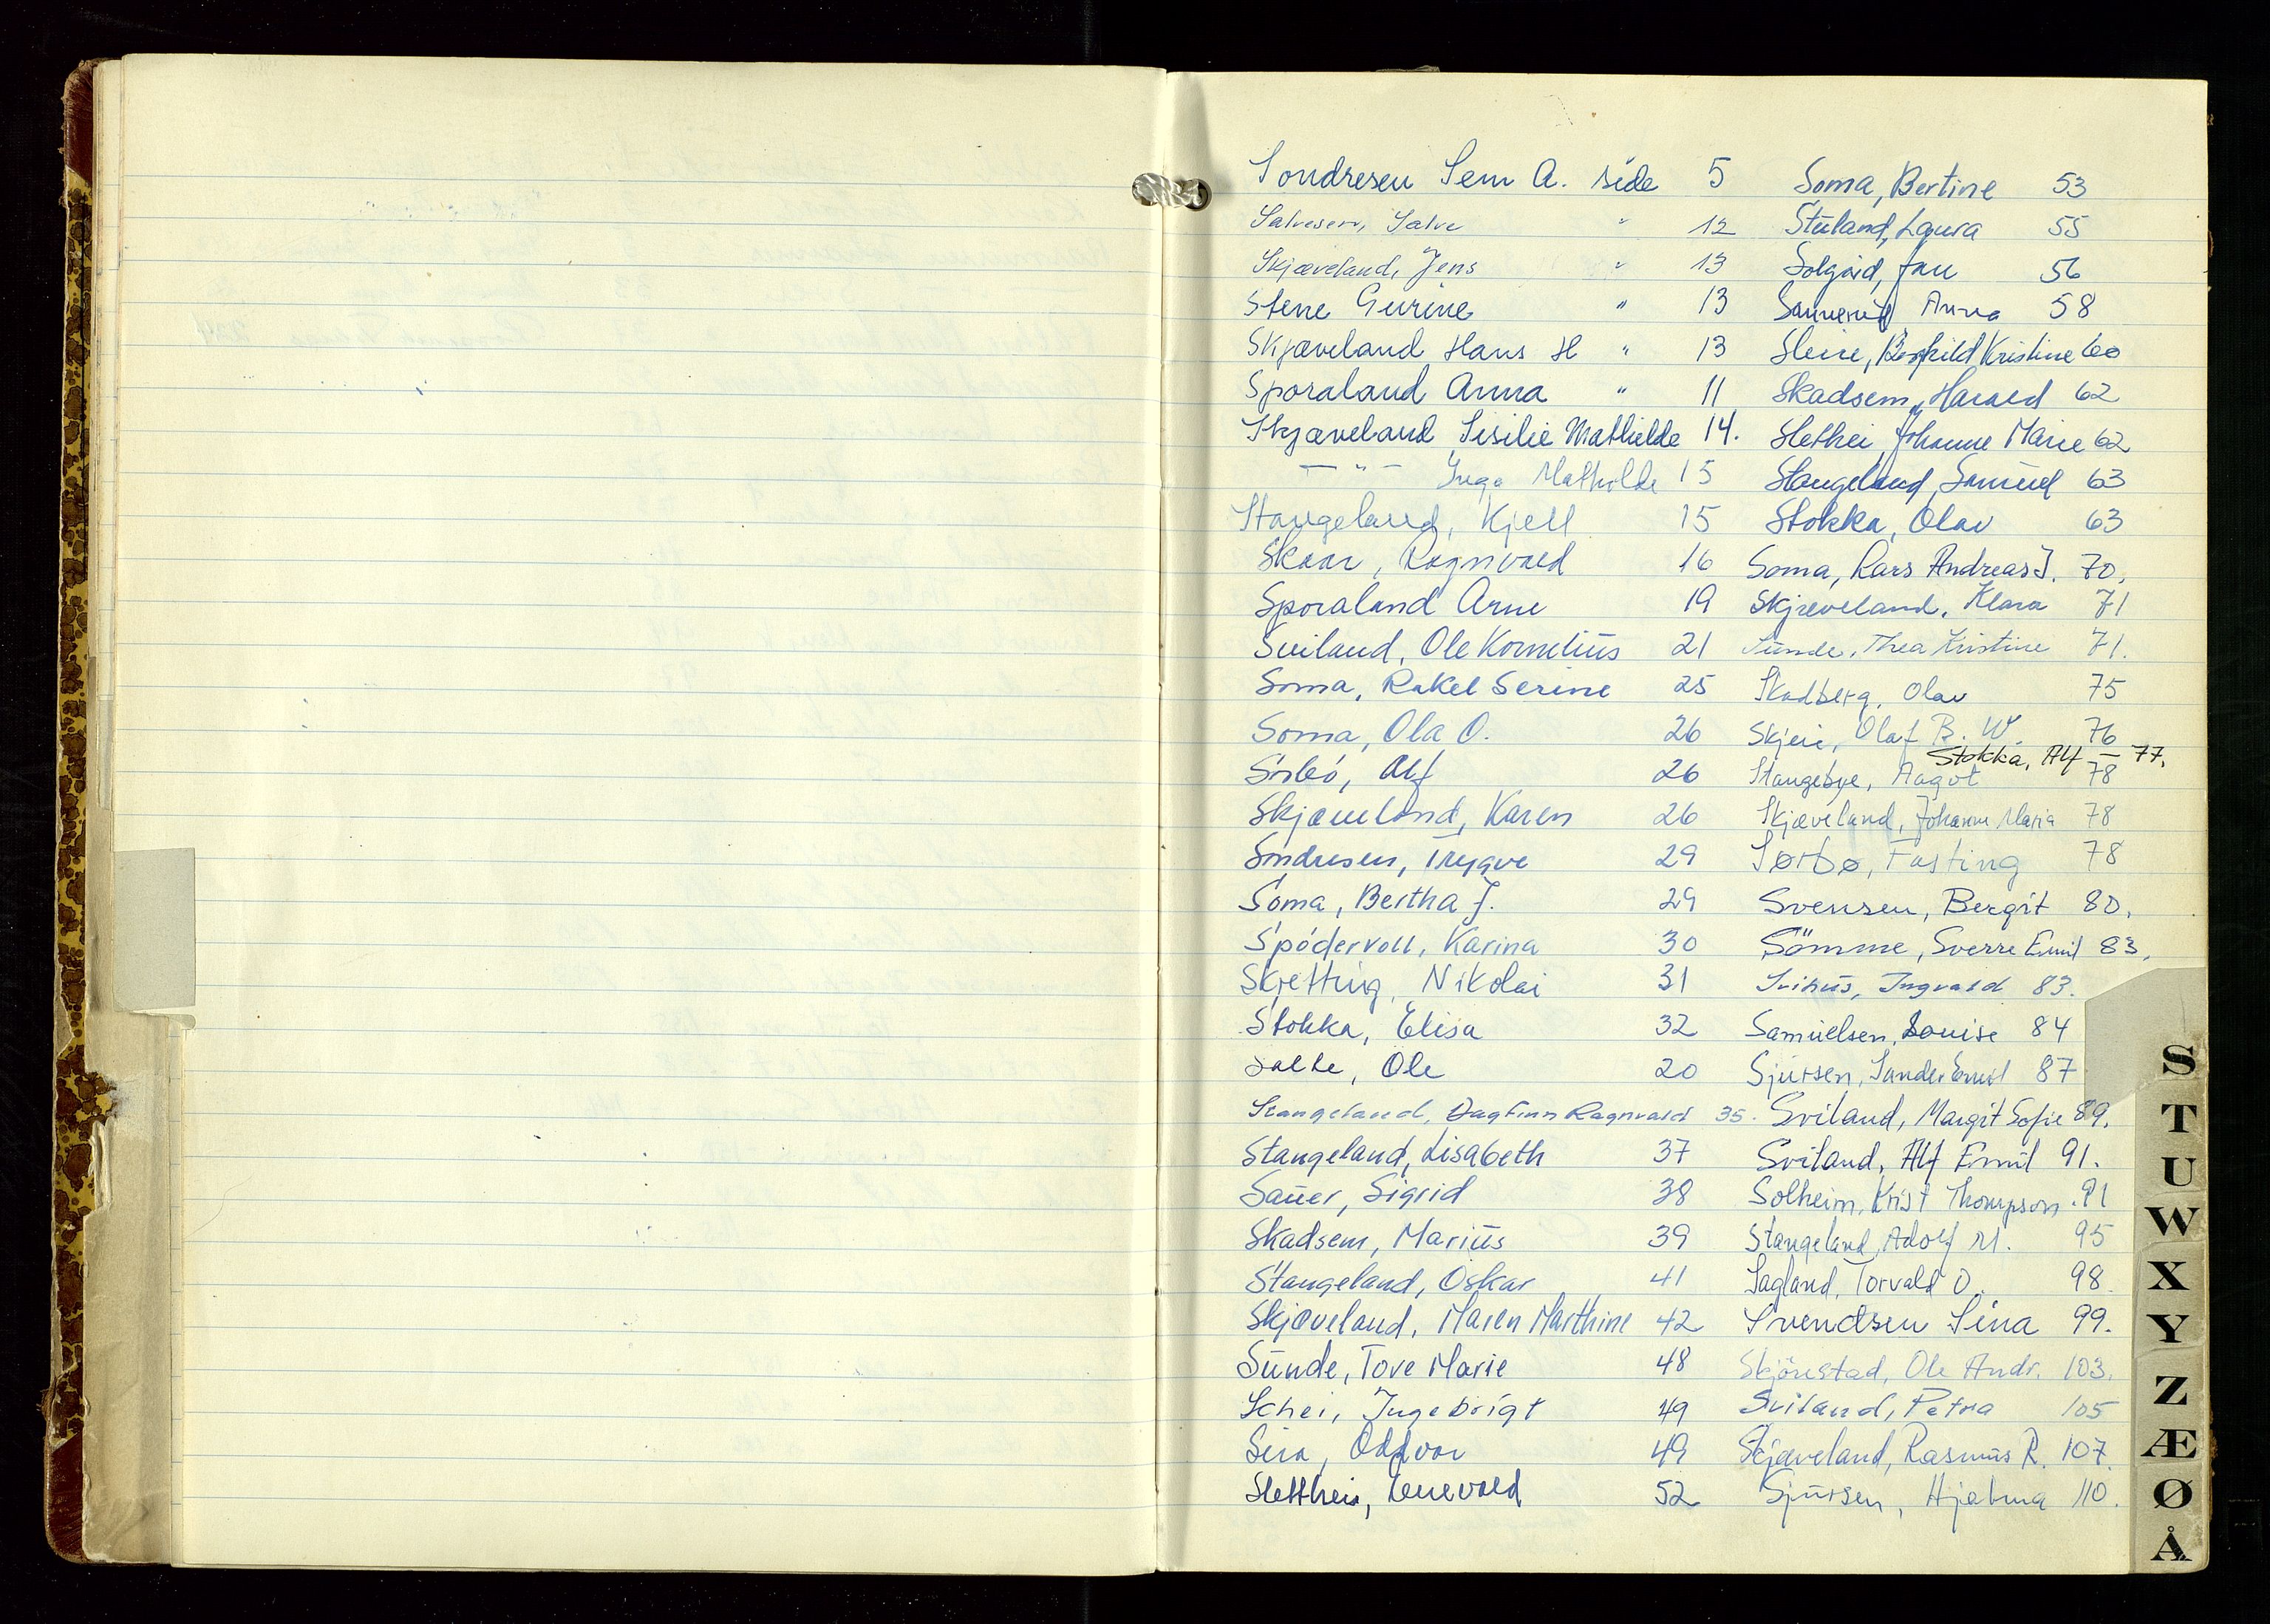 Sondresen Sem A. side 5
Salvesen, Salve " 12
Skjæveland, Jens " 13
Stene Gurine " 13
Skjæveland Hans H " 13
Sporaland Anna " 11
Skjæveland Sisilie Mathilde 14.
— " — Inga Mathilde 15
Stangeland, Kjell 15
Skaar, Ragnvald 16
Sporaland Arne 19
Sviland, Ole Kornelius 21
Soma, Rakel Serine 25
Soma, Ola O. 26
Sørbø, Alf 26
Skjæveland, Karen 26
Sondresen, Trygve 29
Soma, Bertha J. 29
Spødervoll, Karina 30
Skjetting, Nikolai 31
Stokka, Elisa 32
Salte, Ole 20
Stangeland, Dagfinn Ragnvald 35.
Stangeland, Lisabeth 37
Sauer, Sigrid 38
Skadsem, Marius 39
Stangeland, Oskar 41
Skjæveland, Maren Marthine 42
Sunde, Tove Marie 48
Schei, Ingebrigt 49
Sira, Oddvar 49
Slettheis, Enevald 52
Soma, Bertine 53
Stuland, Laura 55
Solgård, Jan 56
Anna 58
Sleire, Borghild Kristine 60
Skadsem, Harald 62
Slethei, Johanne Marie 62
Stangeland, Samuel 63
Stokka, Olav 63
Soma, Lars Andreas J. 70.
Skjæveland, Klara 71
Sunde, Thea Kristine 71.
Skadberg, Olav 75
Skjeie, Olaf B. W. 76
Stokka, Alf — 77.
Stangebye, Aagot 78
Skjæveland, Johanne Maria 78
Sørbø, Fasting 78
Svensen, Bergit 80.
Sömme, Sverre Emil 83.
Ingvald 83.
Samuelsen, Louise 84
Sjursen, Sander Emil 87
Sviland, Margit Sofie 89.
Sviland, Alf Emil 91.
Solheim, Krist Thompson. 91
Stangeland, Adolf M. 95
Sagland, Torvald O. 98.
Svendsen Sina 99.
Skjörestad, Ole Andr. 103.
Sviland, Petra 105
Skjæveland, Rasmus R. 107.
Sjursen, Hjalma 110.
S
T
U
W
X
Y
Z
Æ
Ø
Å